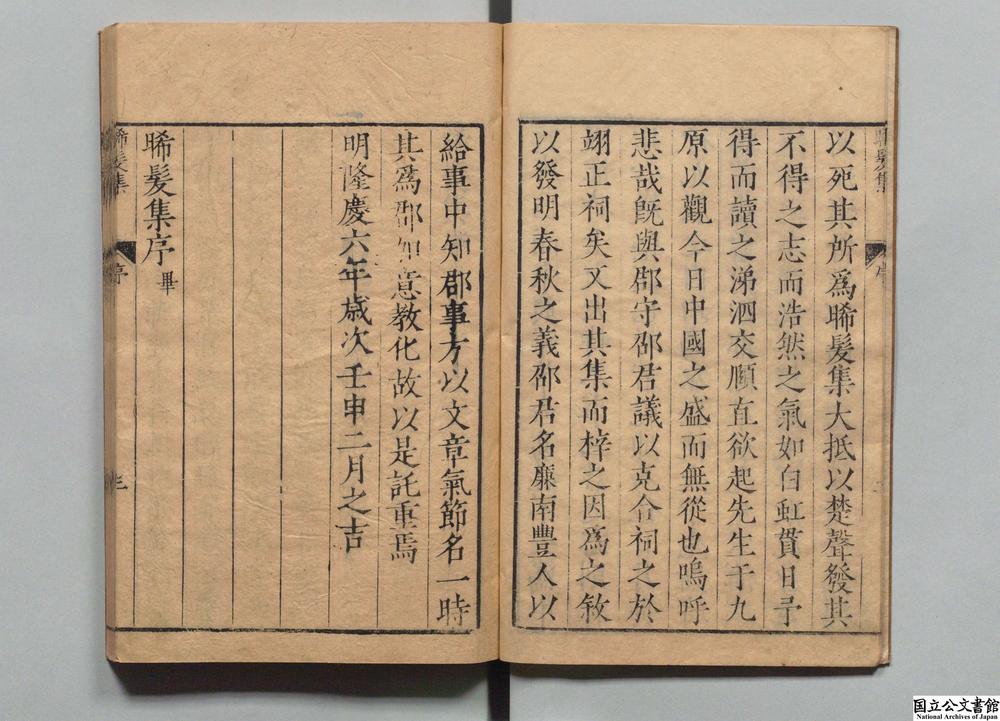 以死其所爲晞髮集大抵以楚聲發其
不得之志而浩然之氣如白虹貫日予
得而讀之涕泗交頤直欲起先生于九
原以觀今日中國之盛而無從也嗚呼
悲哉旣與郡守邵君議以克合祠之於
翊正祠矣又出其集而梓之因爲之敘
以發明春秋之義邵君名廉南豐人以
晞髮集
序
給事中知郡事方以文章氣節名一時
其爲郡如意教化故以是託重焉
明隆慶六年歲次壬申二月之吉
晞髮集序畢
晞髮集
序
三
国立公文書館
National Archives of Japan